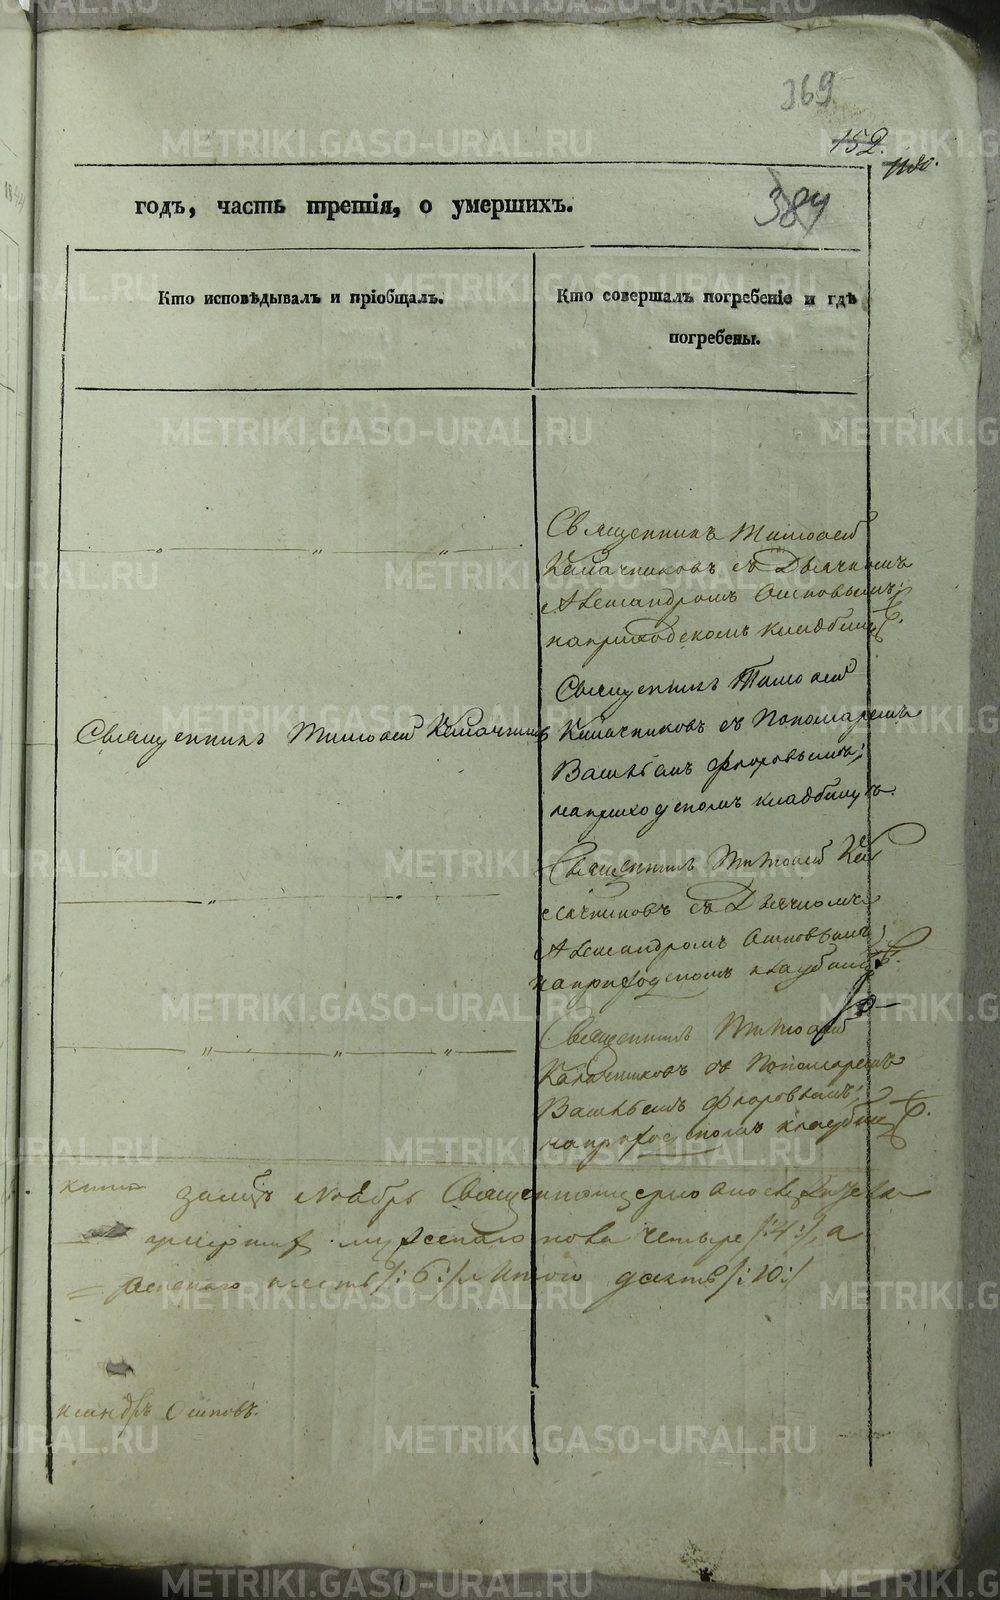 369
152.
годъ, часть третія, о умершихъ.
384
Кто исповѣдывалъ и пріобщалъ.
Кто совершалъ погребеніе и гдѣ
погребены.
Священникъ Тимоѳей
Калачниковъ съ Дьячкомъ
Александромъ Осиповымъ;
на приходскомъ кладбищѣ.
Священникъ Тимоѳей Калачниковъ
Священникъ Тимоѳей
Калачниковъ съ Пономаремъ
Васильемъ Флоровымъ;
на приходскомъ кладбищѣ.
Священникъ Тимоѳей Ка
лачниковъ съ Дьячкомъ
Александромъ Осиповымъ;
на приходскомъ кладбищѣ.
Священникъ Тимоѳей
Калачниковъ съ Пономаремъ
Васильемъ Флоровымъ;
на приходскомъ кладбищѣ.
Ноябрь
мужескаго пола четыре /:4:/, а
женскаго шесть /:6:/ Итого десять /:10:/
ксандръ Осиповъ.
METRIKI.GASO-URAL.RU